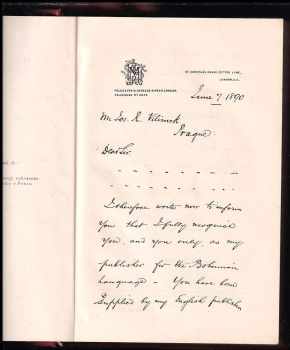 June 7 1890
Mr Jos. R. Vilimek
Prague
Dear Sir
I therefore write now to inform
you that I fully recognise
you, and you only, as my
publisher for the Bohemian
language – You have been
supplied by my English publisher